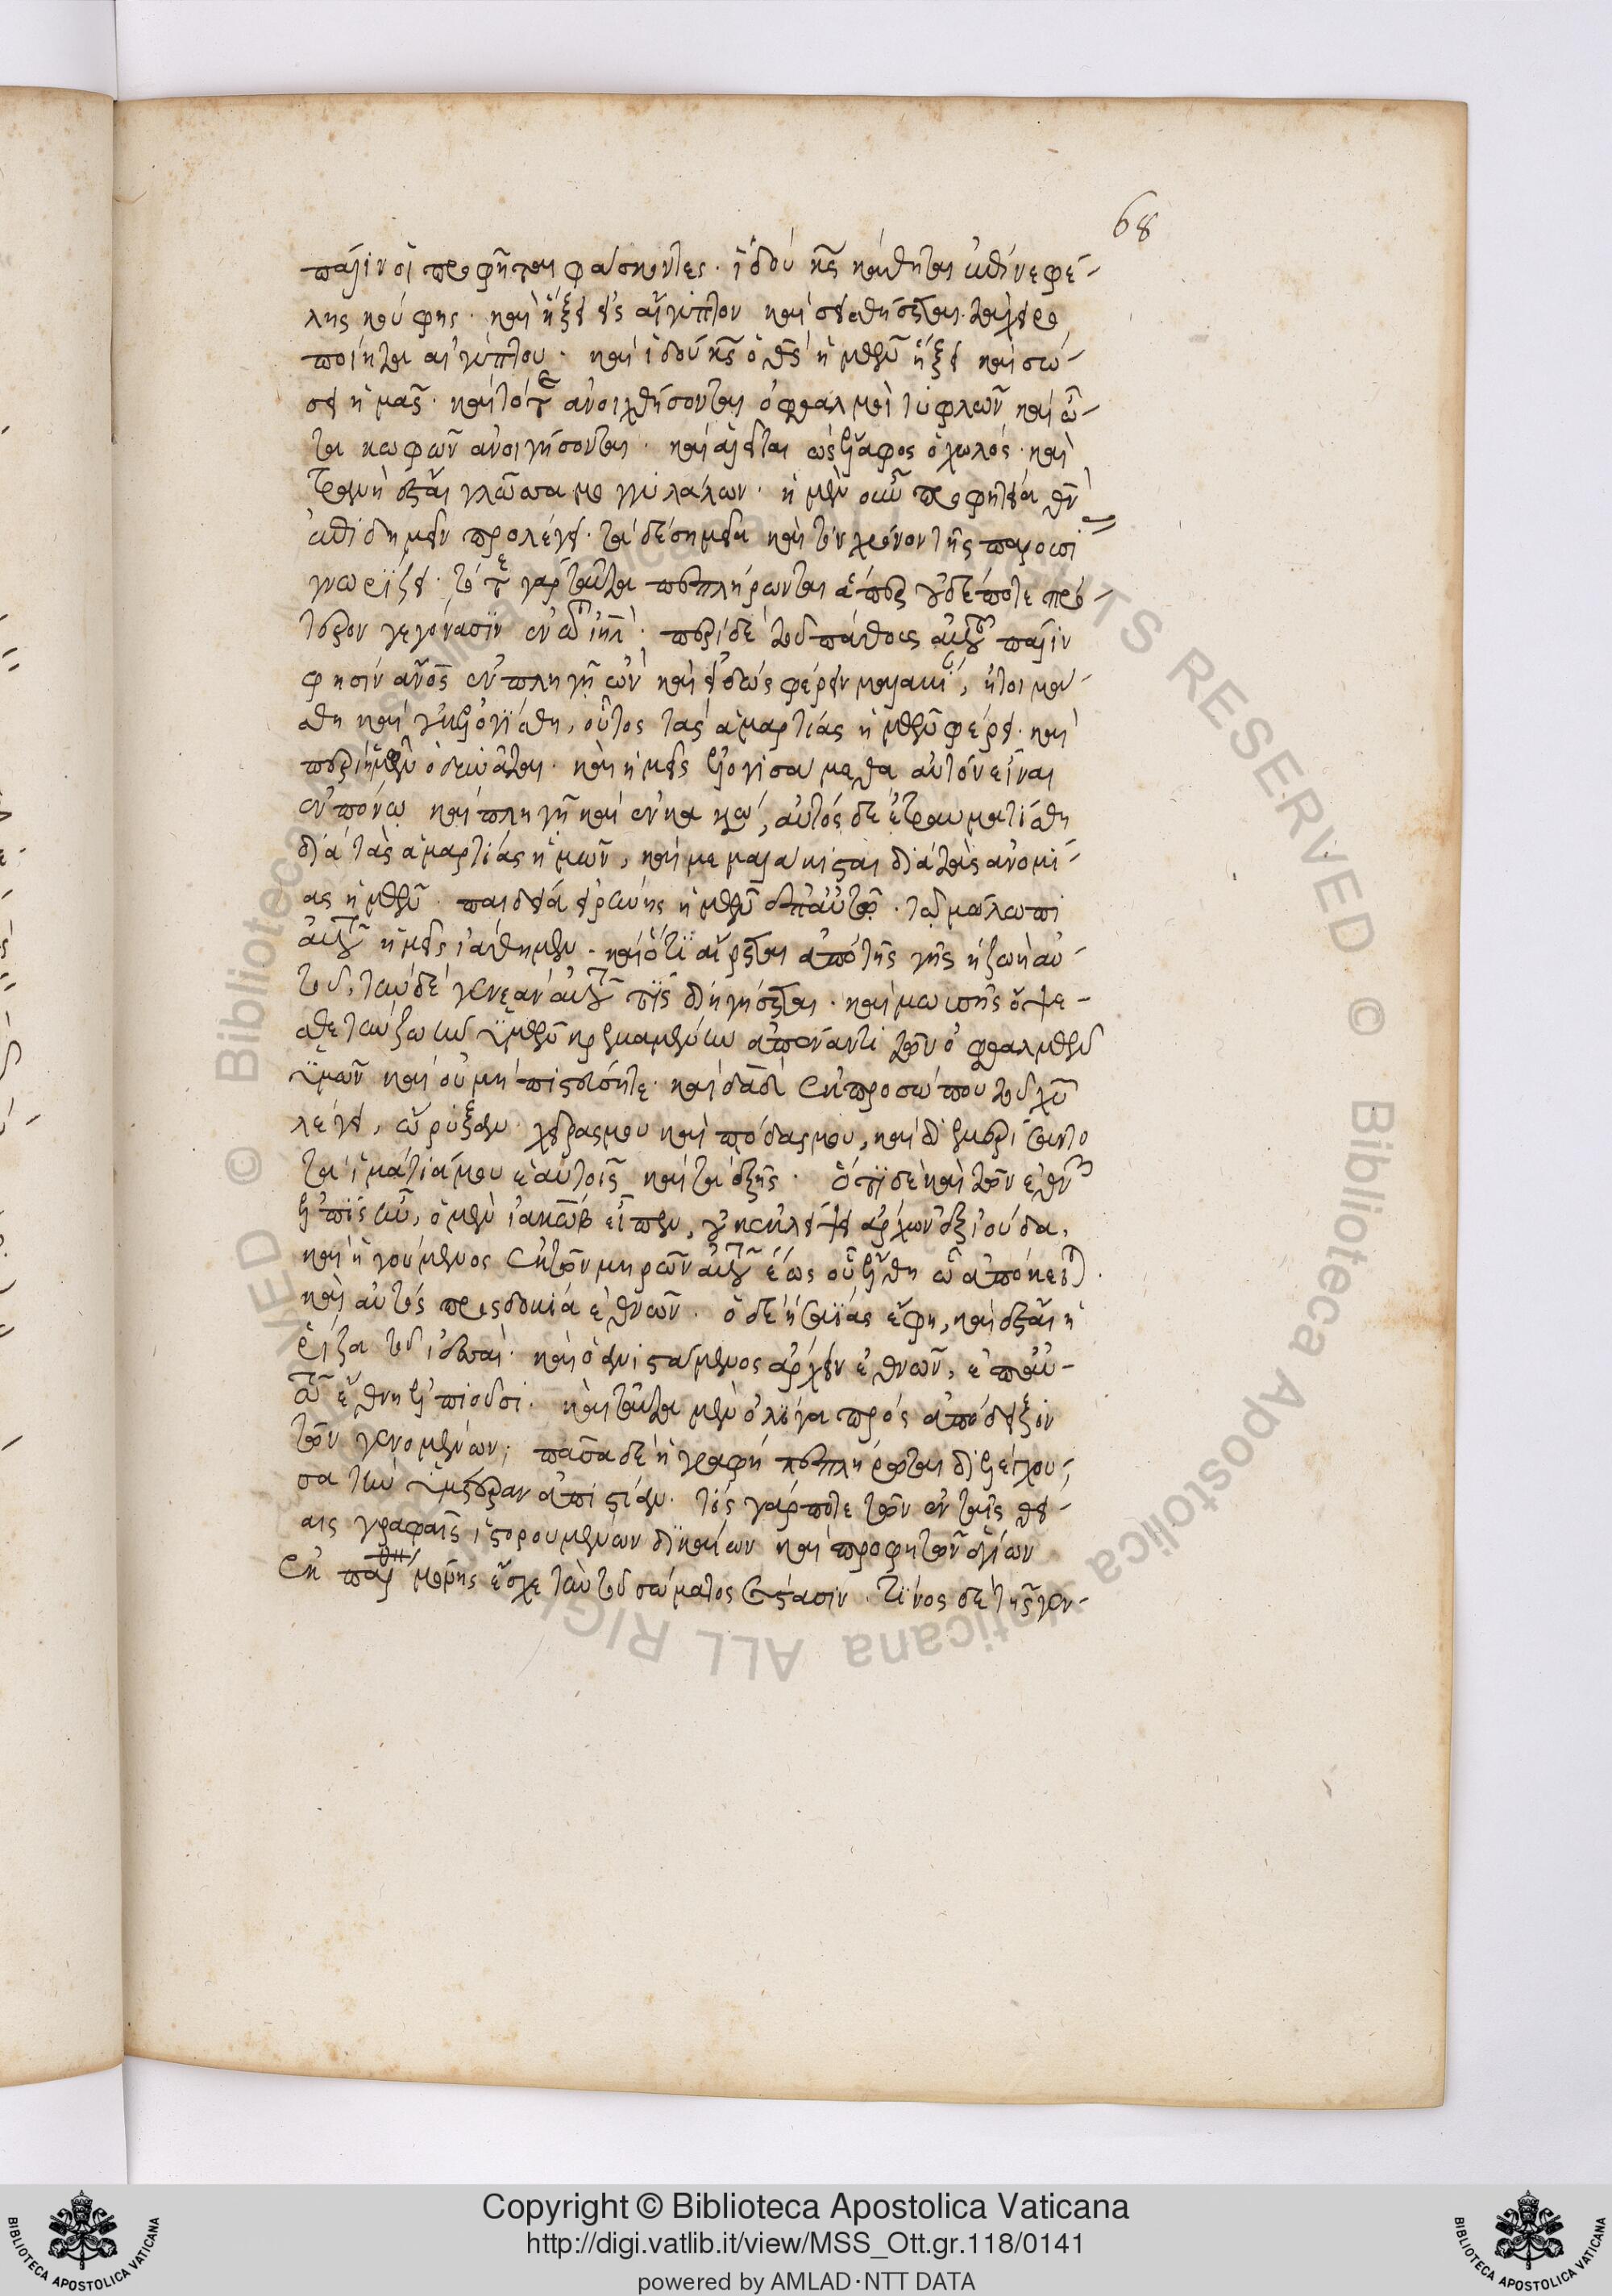 68
πάλιν οἱ προφῆται φάσκοντες· ἰδοὺ κς κάθηται ἐπὶ νεφέ-
λης κούφης· καὶ ἥξει εἰς αἴγυπτον καὶ σεισθήσεται τὰ χειρο
ποίητα αἰγύπτου· καὶ ἰδοὺ κς ὁ θς ἡμῶν ἥξει καὶ σώ-
σει ἡμᾶς· καὶ τότε ἀνοιχθήσονται ὀφθαλμοὶ τυφλῶν καὶ ὦ-
τα κωφῶν ἀνοιγήσονται· καὶ ἁλεῖται ὡς ἔλαφος ὁ χωλός· καὶ
τρανὴ ἔσται γλῶσσα μογιλάλων· ἡ μὲν οὖν προφητεία θν
ἐπιδημεῖν προλέγει· τὰ δὲ σημεῖα καὶ τὸν χρόνον τῆς παρουσί
γνωρίζει· τότε γὰρ ταῦτα πεπλήρωνται ἅπερ οὐδέποτε πρό-
τερον γεγόνασιν ἐν τῶ ιηλ· περὶ δὲ τοῦ πάθους αὐτοῦ πάλιν
φησίν ανος ἐν πληγῆ ὢν καὶ εἰδὼς φέρειν μαλακί, ἠτοιμά-
σθη καὶ οὐκ ἐλογίσθη, οὗτος τὰς ἁμαρτίας ἡμῶν φέρει· καὶ
περὶ ἡμῶν ὀδυνᾶται· καὶ ἡμεῖς ἐλογισάμεθα αὐτὸν εἶναι
ἐν πόνω καὶ πληγῆ καὶ ἐν κακώ, αὐτὸς δὲ ἐτραυματίσθη
διὰ τὰς ἁμαρτίας ἡμῶν, καὶ μεμαλάκισται διὰ τὰς ἀνομί-
ας ἡμῶν· παιδεία εἰρήνης ἡμῶν ἐπ' αὐτῶ· τῶ μώλωπι
αὐτοῦ ἡμεῖς ἰάθημεν· καὶ ὅτι αἴρεται ἀπὸ τῆς γῆς ἡ ζωὴ αὐ-
τοῦ, τὴν δὲ γενεὰν αὐτοῦ τίς διηγήσεται· καὶ μωυσῆς ὄψε-
σθε τὴν ζωὴν ὑμῶν κρεμαμένην ἀπέναντι τῶν ὀφθαλμῶν
ὑμῶν καὶ οὐ μὴ πιστεύσητε· καὶ δαδ ἐκ προσώπου τοῦ χυ
λέγει, ὤρυξαν χεῖρας μου καὶ πόδας μου, καὶ διεμερίσαντο
τὰ ἱμάτιά μου ἑαυτοῖς καὶ τὰ ἑξῆς· ὅτι δὲ καὶ τῶν ἐθνῶν
ἐλπὶς ἦν, ὁ μὲν ἰακὼβ εἶπεν, οὐκ ἐκλείψει ἄρχων ἐξ ἰούδα,
καὶ ἡγούμενος ἐκ τῶν μηρῶν αὐτοῦ ἕως οὗ ἔλθη ὧ ἀπόκειται·
καὶ αὐτὸς προσδοκία ἐθνῶν· ὁ δὲ ἡσαΐας ἔφη, καὶ ἔσται ἡ
ῥίζα τοῦ ἰεσσαὶ· καὶ ὁ ἀνιστάμενος ἄρχειν ἐθνῶν, ἐπ' αὐ-
τῶ ἔθνη ἐλπιοῦσι· καὶ ταῦτα μὲν ὀλίγα πρὸς ἀπόδειξιν
τῶν γενομένων, πᾶσα δὲ ἡ γραφὴ πεπλήρωται διελέγχου-
σα τὴν ὑμετέραν ἀπιστίαν· τίς γάρ ποτε τῶν ἐν ταῖς θεί-
αις γραφαῖς ἱστορουμένων δικαίων καὶ προφητῶν ἁγίων
ἐκ παρθένου μόνης ἔσχε τὴν τοῦ σώματος σύστασιν· τίνος δὲ τῆς γεν-